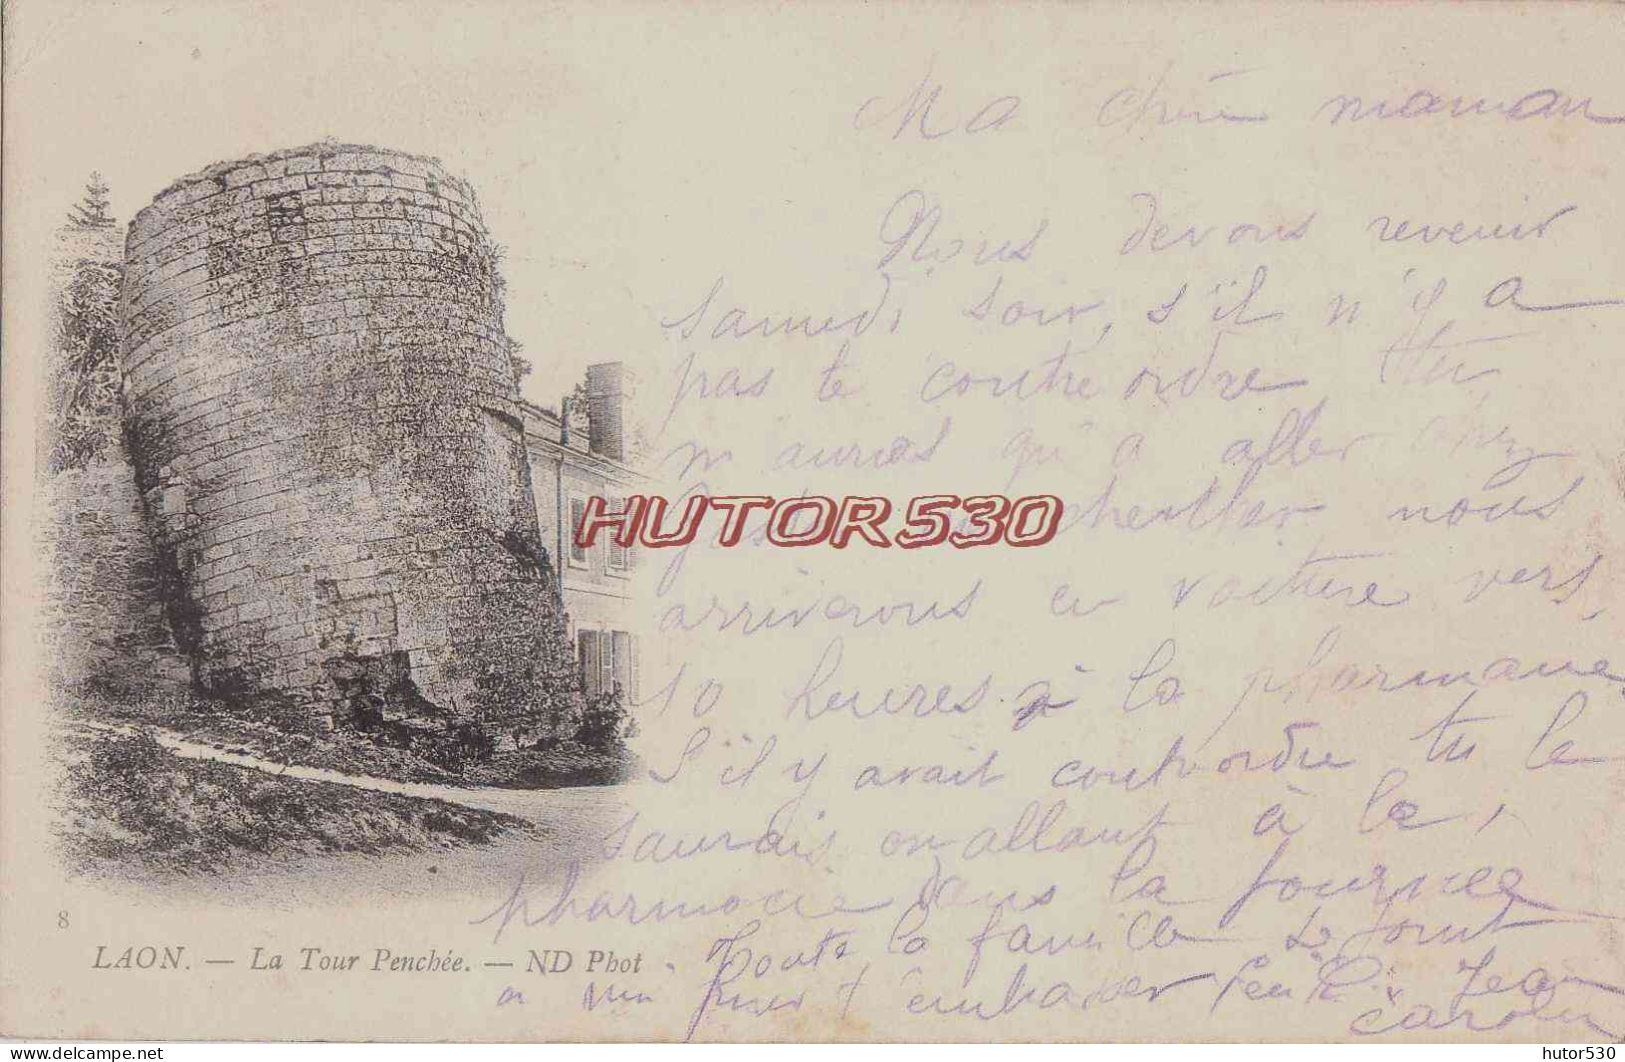 Ma chère maman
Nous devons revenir
samedi soir, s'il n'y a
pas de contre ordre tu
m'auras qu'à aller chez
HUTOR530
chercher nous
arriverons en voiture vers
10 heures à la pharmacie
S'il y avait contrordre tu le
saurais en allant à la
pharmacie dans la journee
Toute la famille se joint
a moi pour t'embrasser
Jean
8
LAON. — La Tour Penchée. — ND Phot
delcampe.net
hutor530